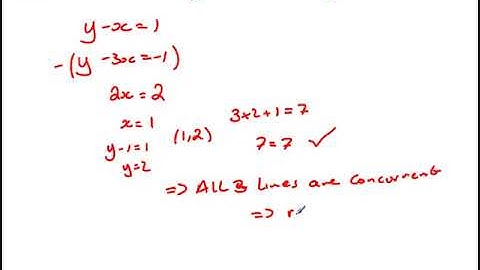 y-x=1
-(y-3x=-1)
2x=2
x=1
y-1=1
y=2
(1,2)
3*2+1=7
7=7 ✓
=> ALL 3 Lines are concurrent
=> r